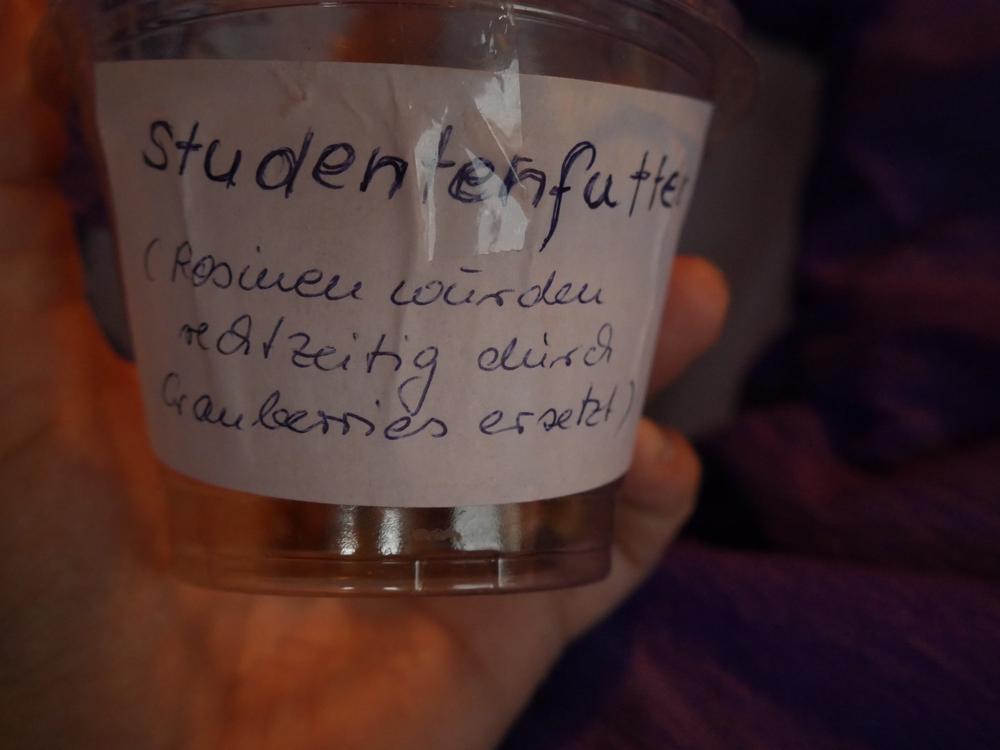 Studentenfutter
(Rosinen wurden
rechtzeitig durch
Cranberries ersetzt)